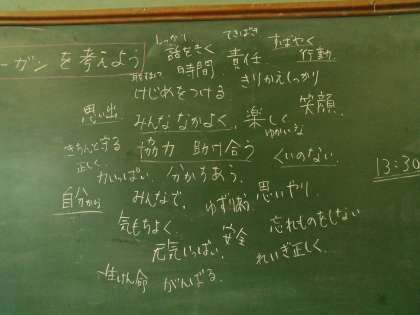 ーガンを考えよう
しっかり てきぱき すばやく
話をきく 責任 行動
時間 きりかえしっかり
けじめをつける 笑顔
思い出 みんななかよく、楽しく
ゆかいな
きちんと守る 協力 助け合う くいのない 13:30
正しく
力いっぱい 分かちあう
自分から みんなで、 ゆずり合い 思いやり
気もちよく 安全 忘れものをしない
元気いっぱい、 れいぎ正しく
一生けん命 がんばる